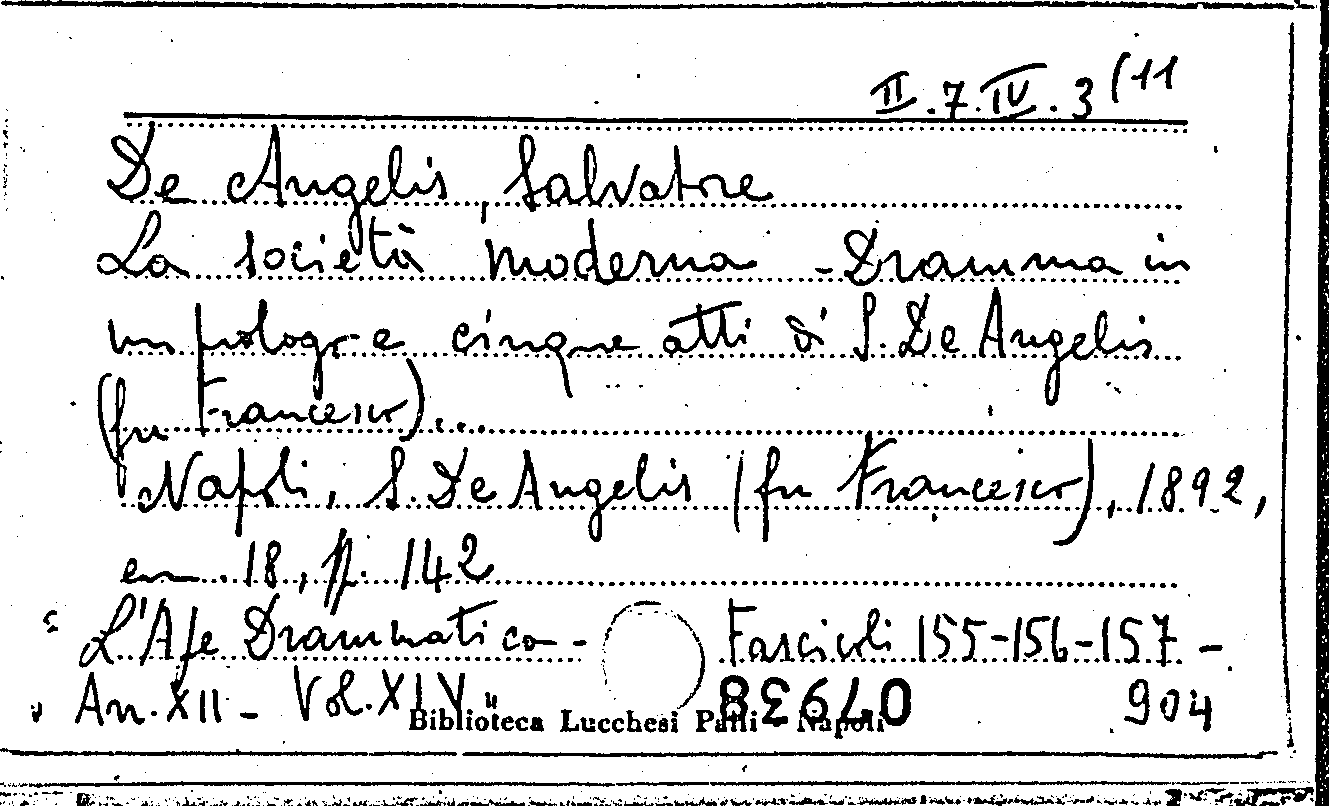 II.7.IV.3(11
De Angelis, Salvatore
La società moderna - Dramma in
un prologo e cinque atti di S. De Angelis
(fu Francesco)...
Napoli, S. De Angelis (fu Francesco), 1892,
cm. 18, p. 142
"L'Ape Drammatica - Fascicoli 155-156-157 -
An. XII - Vol. XIV" 904
Biblioteca Lucchesi Palli Napoli